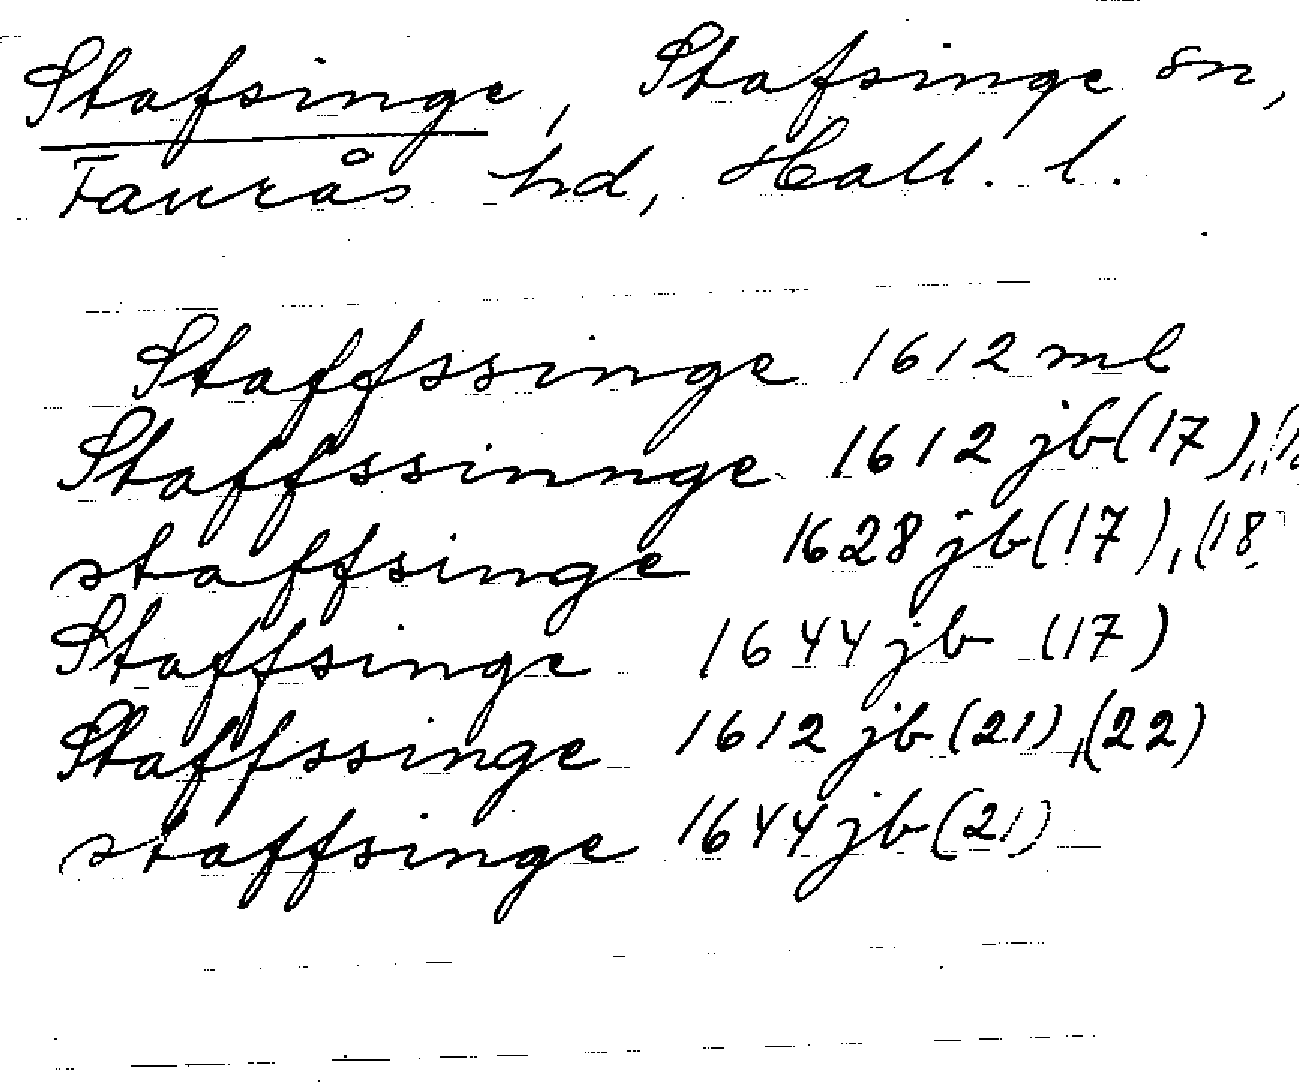 Stafsinge, Stafsinge sn,
Faurås hd, Hall. l.
Staffssinge 1612 ml
Staffssinnge 1612 jb (17),
staffsinge 1628 jb (17), (18
Staffsinge 1644 jb (17)
Staffssinge 1612 jb (21), (22)
staffsinge 1644 jb (21)